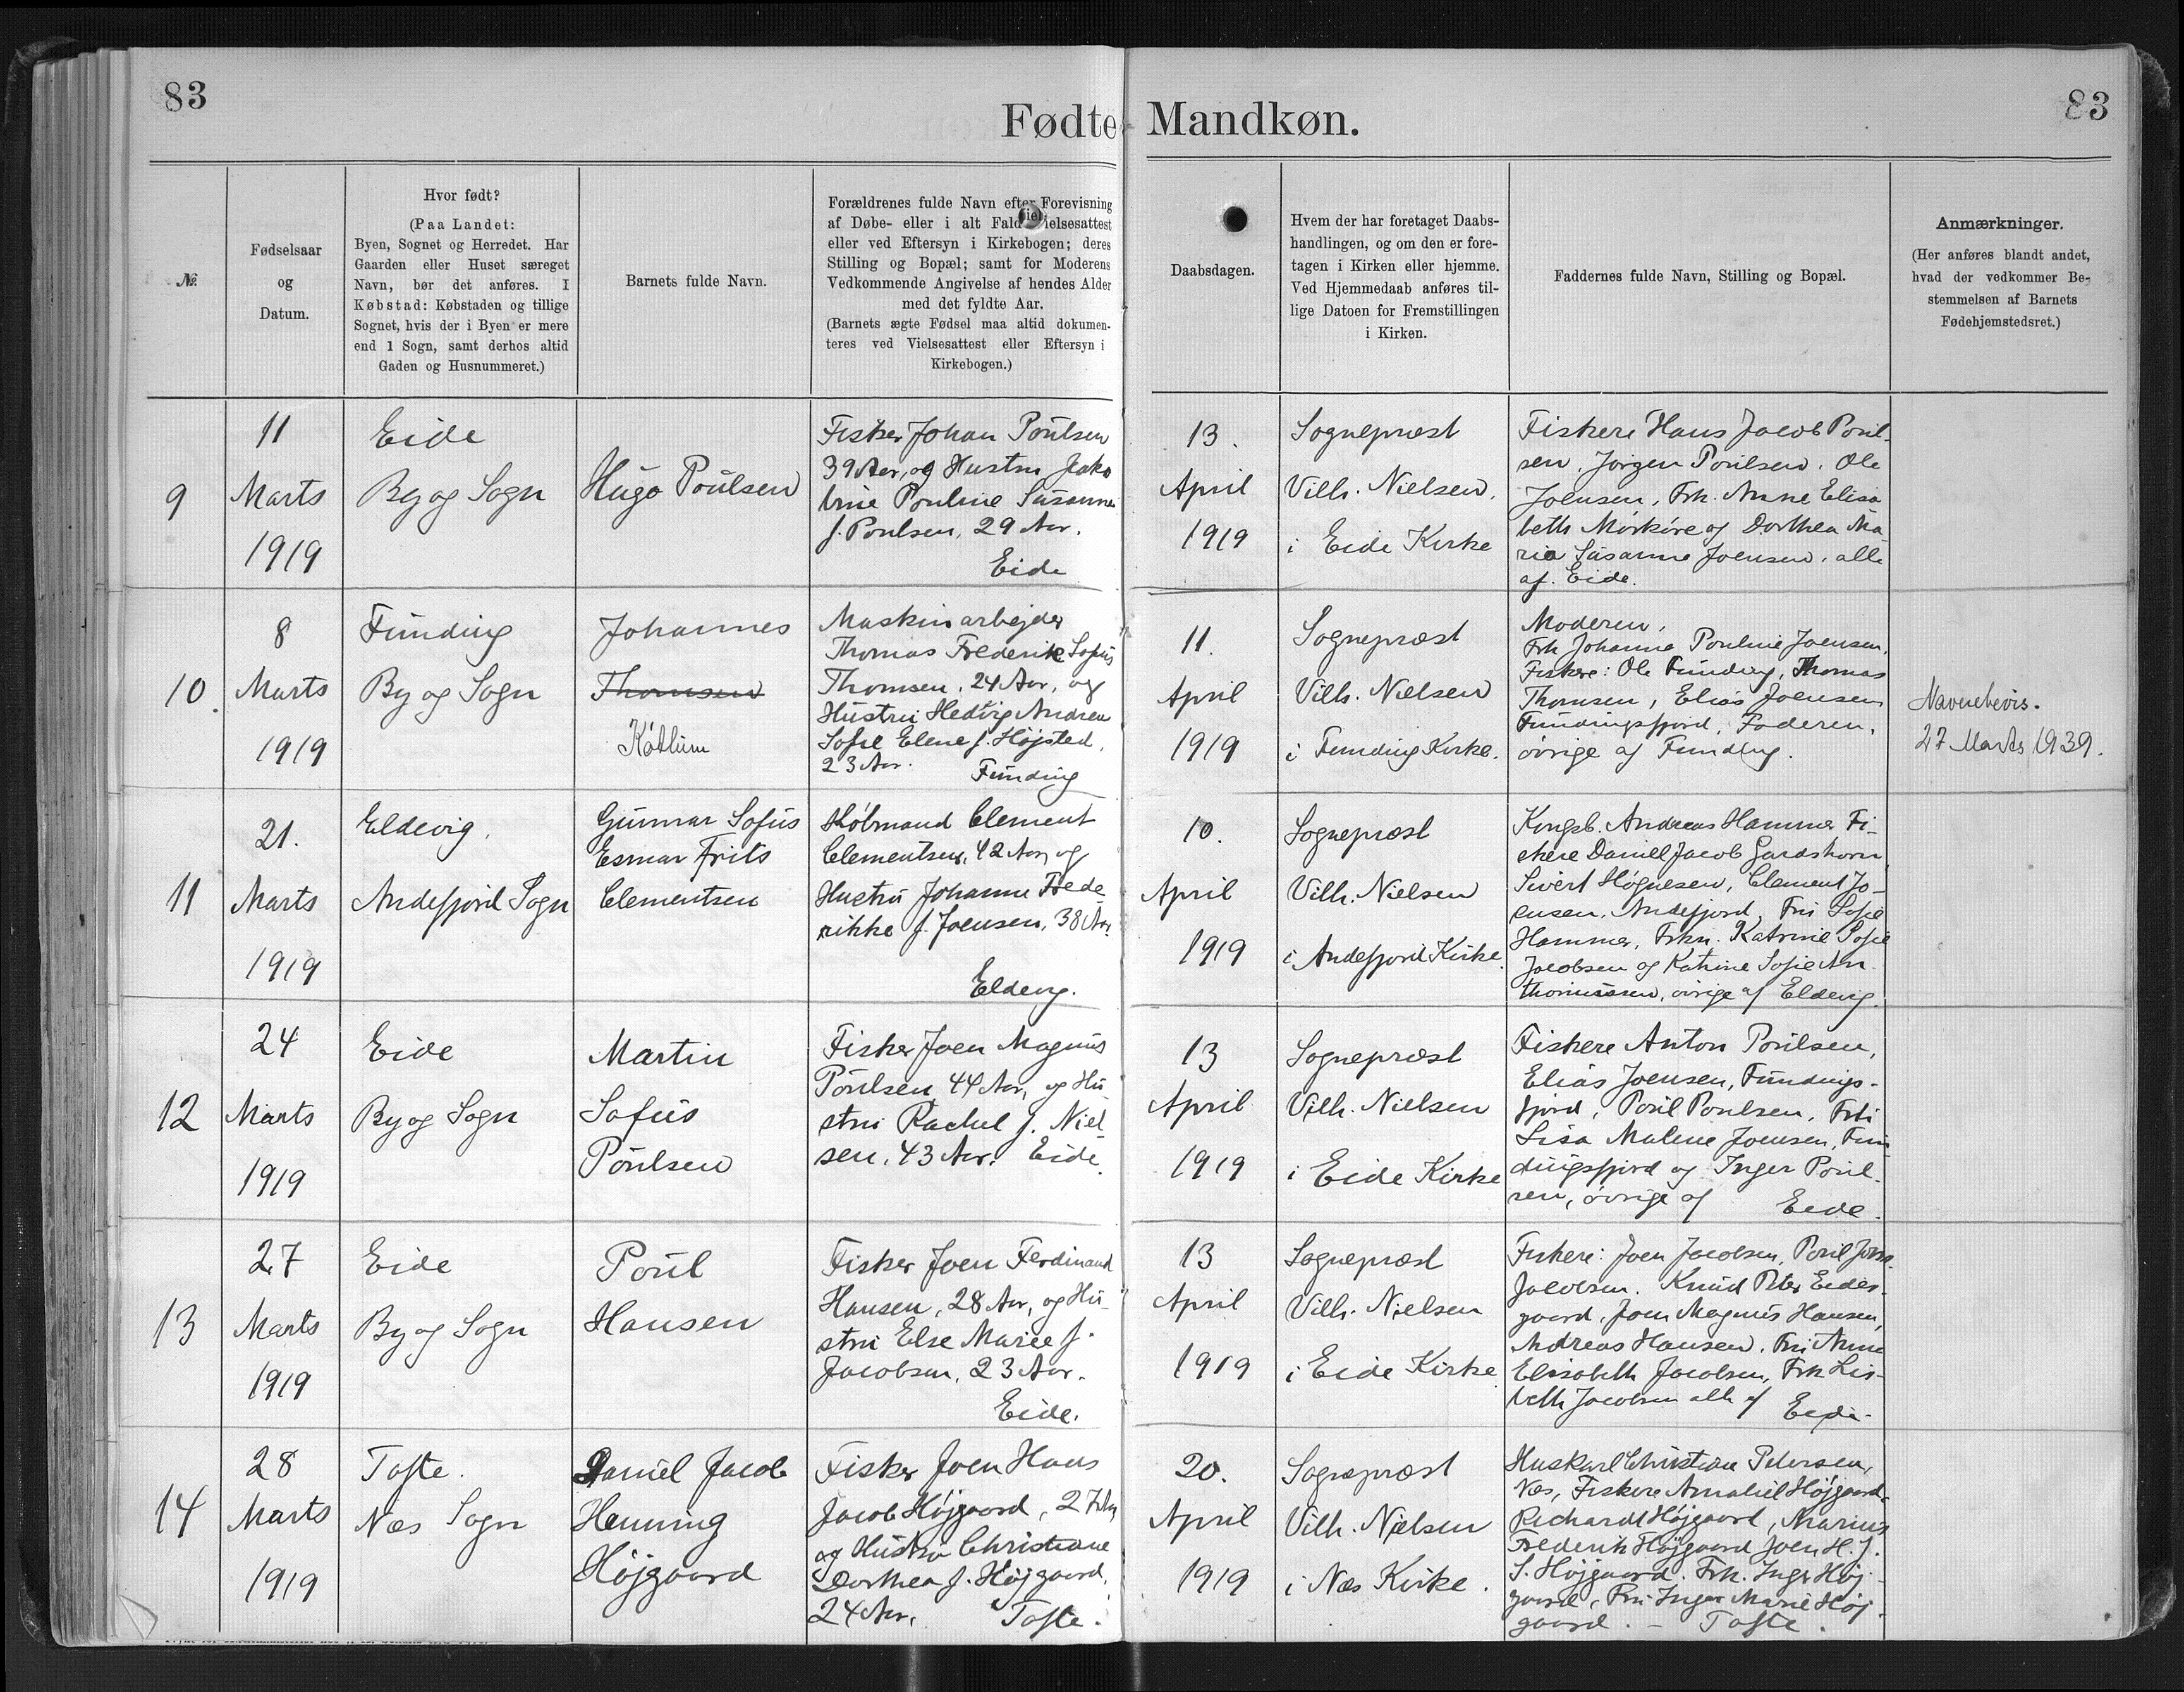 83
83
Fødte Mandkøn.
№
Fødselsaar
og
Datum.
Hvor født?
(Paa Landet:
Byen, Sognet og Herredet. Har
Gaarden eller Huset særeget
Navn, bør det anføres. I
Købstad: Købstaden og tillige
Sognet, hvis der i Byen er mere
end 1 Sogn, samt derhos altid
Gaden og Husnummeret.)
Barnets fulde Navn.
Forældrenes fulde Navn efter Forevisning
af Døbe- eller i alt Fald Vielsesattest
eller ved Eftersyn i Kirkebogen; deres
Stilling og Bopæl; samt for Moderens
Vedkommende Angivelse af hendes Alder
med det fyldte Aar.
(Barnets ægte Fødsel maa altid dokumen-
teres ved Vielsesattest eller Eftersyn i
Kirkebogen.)
Daabsdagen.
Hvem der har foretaget Daabs-
handlingen, og om den er fore-
tagen i Kirken eller hjemme.
Ved Hjemmedaab anføres til-
lige Datoen for Fremstillingen
i Kirken.
Faddernes fulde Navn, Stilling og Bopæl.
Anmærkninger.
(Her anføres blandt andet,
hvad der vedkommer Be-
stemmelsen af Barnets
Fødehjemstedsret.)
9
11
Marts
1919
Eide
By og Sogn
Hugo Poulsen
Fisker Johan Poulsen
39 Aar, og Hustru Jako
bine Pouline Susanne
f. Poulsen, 29 Aar.
Eide
13.
April
1919
Sognepræst
Vilh. Nielsen.
i Eide Kirke
Fiskere Hans Jacob Poul-
sen, Jørgen Poulsen, Ole
Joensen, Frk. Anne Elisa
beth Mørkøre og Dorthea Ma
ria Susanne Joensen, alle
af Eide.
10.
8
Marts
1919
Funding
By og Sogn
Johannes
Thomsen
Køtlum
Maskinarbejder
Thomas Frederik Sofus
Thomsen, 24 Aar, og
Hustru Hedvig Andrea
Sofie Elene f. Højsted,
23 Aar.
Funding
11.
April
1919
Sognepræst
Vilh. Nielsen
i Funding Kirke.
Moderen,
Frk Johanna Pouline Joensen,
Fiskere: Ole Funding, Thomas
Thomsen, Elias Joensen
Fundingsfjord, Faderen,
øvrige af Funding.
Navnebevis.
27 Marts 1939.
11
21.
Marts
1919
Eldevig.
Andefjord Sogn
Gunnar Sofus
Esmar Frits
Clementsen
Købmand Clement
Clementsen, 42 Aar, og
Hustru Johanne Frede
rikke f. Joensen, 38 Aar.
Eldevig.
10.
April
1919
Sognepræst
Vilh. Nielsen
i Andefjord Kirke.
Kongsb. Andreas Hammer Fi-
skere Daniel Jacob Gardshorn
Sivert Høgnesen, Clement Jo-
ensen, Andefjord, Fru Sofie
Hammer, Frkn. Katrine Sofie
Jacobsen og Katrine Sofie An-
thoniussen, øvrige af Eldevig.
12
24
Marts
1919
Eide
By og Sogn
Martin
Sofus
Poulsen
Fisker Joen Magnus
Poulsen, 44 Aar, og Hu-
stru Rachel f. Niel
sen, 43 Aar. Eide.
13
April
1919
Sognepræst
Vilh. Nielsen
i Eide Kirke
Fiskere Anton Poulsen,
Elias Joensen, Fundings-
fjord, Poul Poulsen, Fru
Lisa Malene Joensen, Fun
dingsfjord og Inger Poul-
sen, øvrige af Eide.
13
27
Marts
1919
Eide
By og Sogn
Poul
Hansen
Fisker Joen Ferdinand
Hansen, 28 Aar, og Hu-
stru Else Marie f.
Jacobsen, 23 Aar.
Eide.
13
April
1919
Sognepræst
Vilh. Nielsen
i Eide Kirke
Fiskere: Joen Jacobsen, Poul
Jacobsen, Knud Peter Eides-
gaard, Joen Magnus Hansen,
Andreas Hansen, Fru Anne
Elisabeth Jacobsen, Frk Lis-
beth Jacobsen alle af Eide.
14
28
Marts
1919
Tofte.
Næs Sogn
Daniel Jacob
Henning
Højgaard
Fisker Joen Hans
Jacob Højgaard, 27 Aar,
og Hustru Christiane
Dorthea f. Højgaard,
24 Aar. Tofte.
20.
April
1919
Sognepræst
Vilh. Nielsen
i Næs Kirke.
Huskarl Christian Petersen,
Næs, Fiskere Højgaard,
Richardt Højgaard, Marius
Frederik Højgaard Joen H. J.
S. Højgaard, Frk. Inger Høj-
gaard, Fru Inger Marie Høj-
gaard. - Tofte.